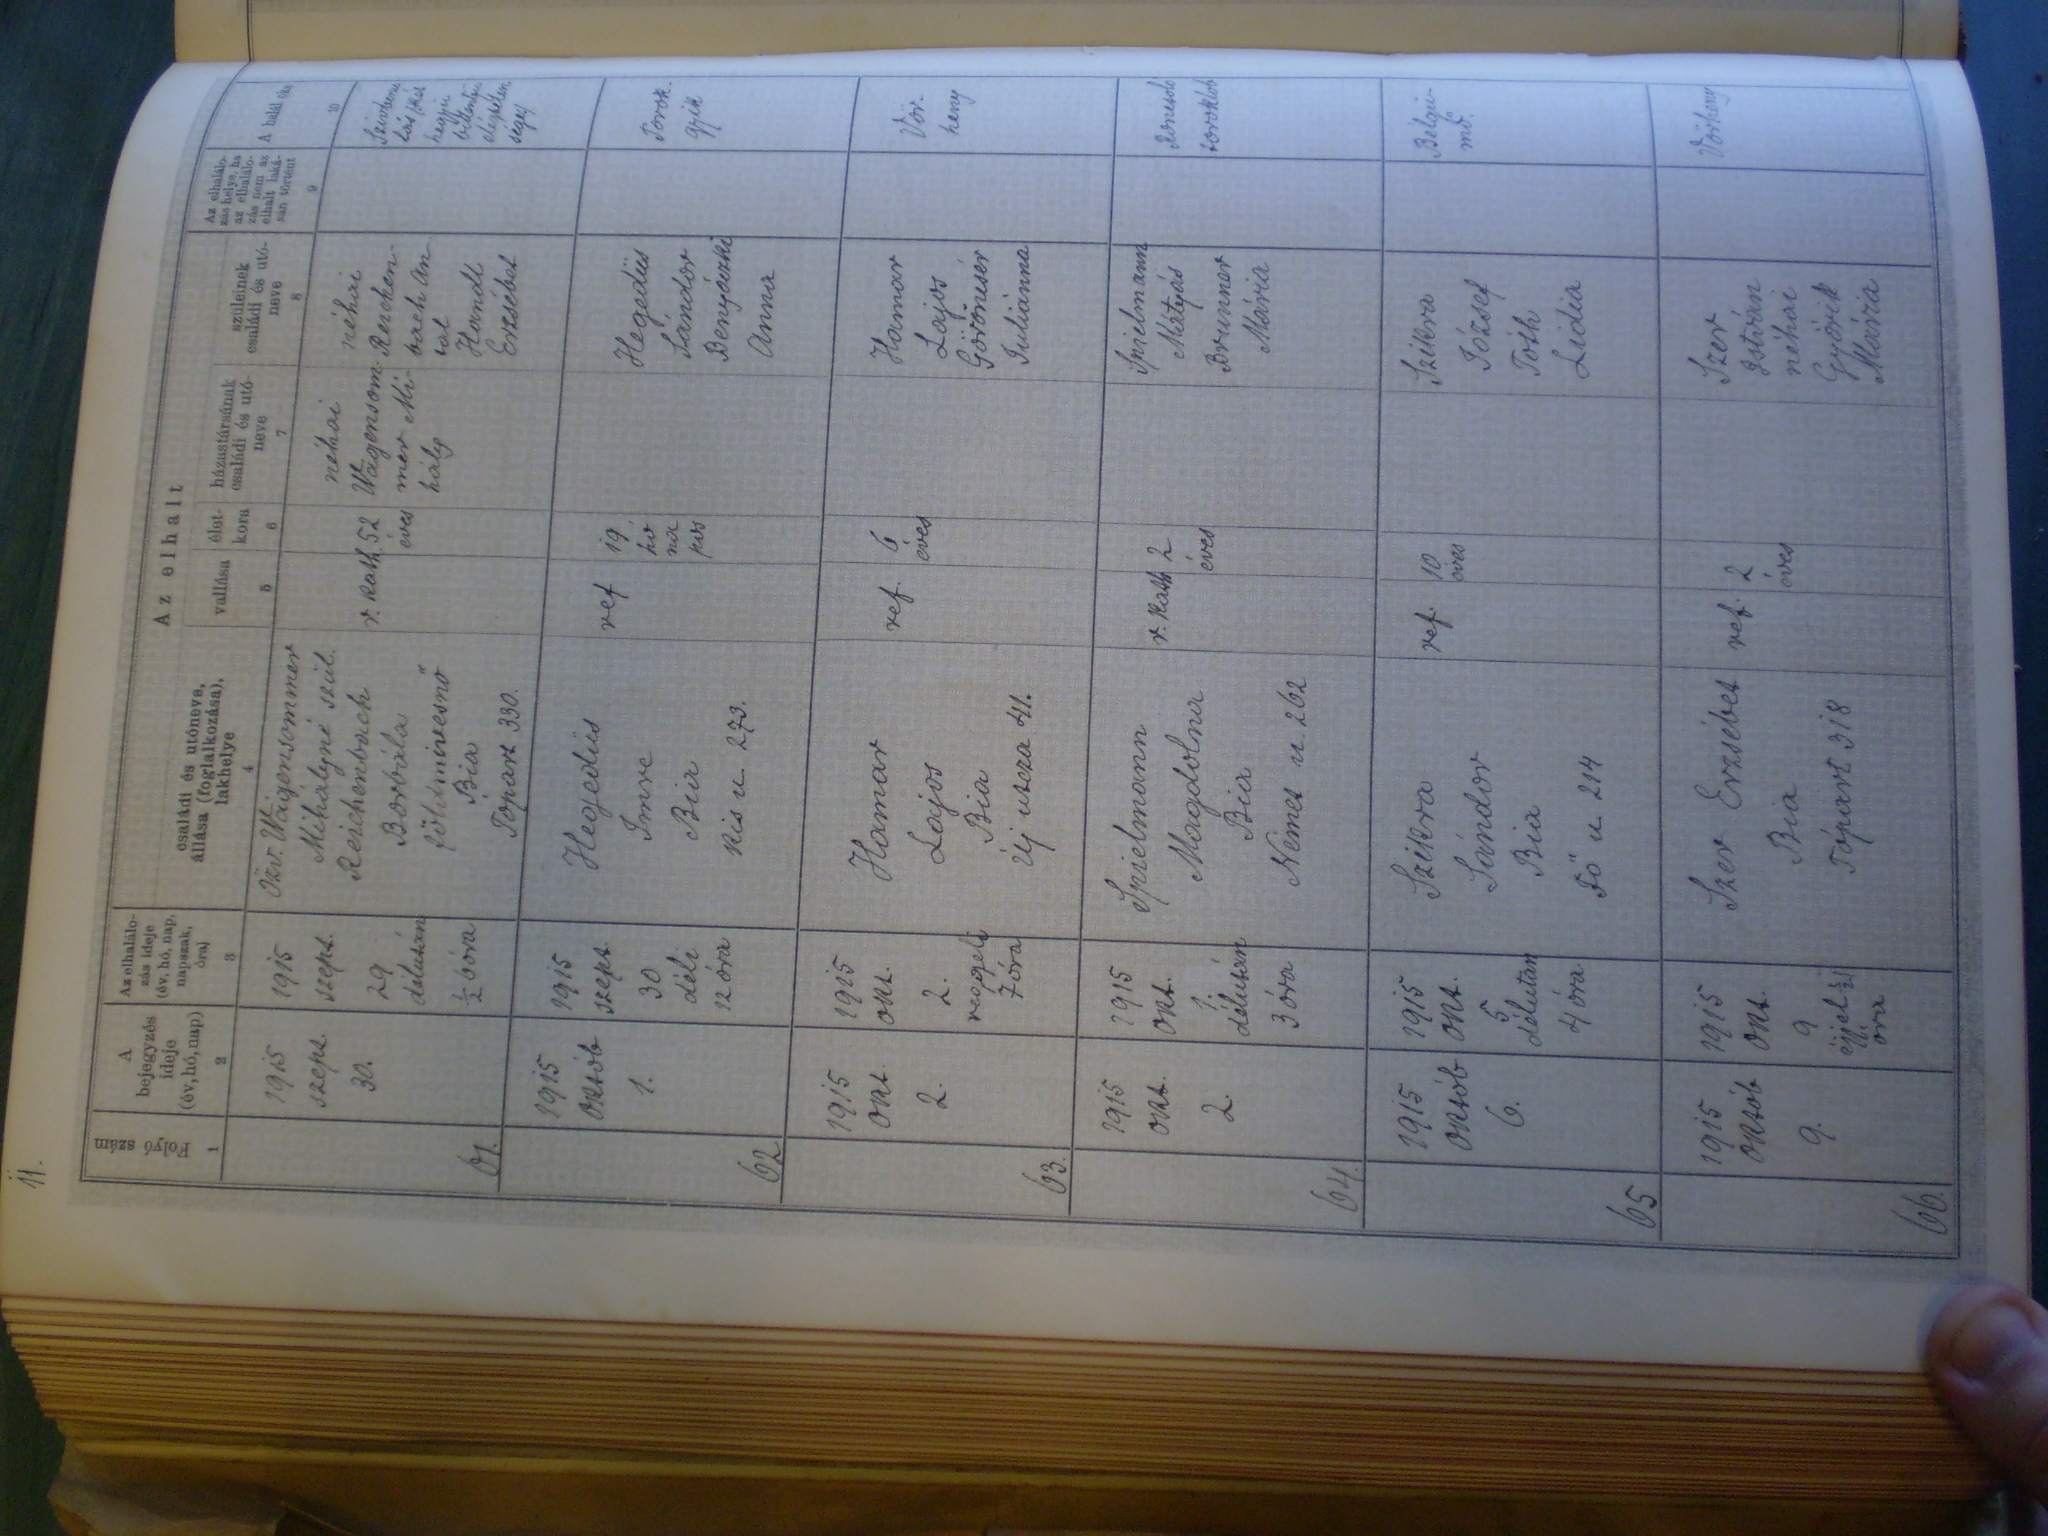 11.
Folyó szám
A bejegyzés ideje (év, hó, nap)
Az elhalálozás ideje (év, hó, nap, napszak, óra)
Az elhalt
családi és utóneve, állása (foglalkozása), lakhelye
vallása
életkora
házastársának családi és utóneve
szüleinek családi és utóneve
Az elhalálozás helye, ha az elhalálozás nem az elhalt lakásán történt
A halál oka
1
2
3
4
5
6
7
8
9
10
61.
1915
szept.
30.
1915
szept.
29
délután
½6 óra
Özv. Wágensommer
Mihályné szül.
Reichenbach
Borbála
földmivesnő
Bia
Tópart 330.
r. kath
52
éves
néhai
Wágensom-
mer Mi-
hály
néhai
Reichen-
bach An-
tal
Handl
Erzsébet
62
1915
októb
1.
1915
szept
30
déli
12 óra
Hegedüs
Imre
Bia
Kis u. 273.
ref
19
hó
na
pos
Hegedüs
Sándor
Benyóczki
Anna
Torok-
gyik
63.
1915
okt.
2.
1915
okt.
2.
reggeli
7 óra
Hamar
Lajos
Bia
Új utcza 41.
ref.
6
éves
Hamar
Lajos
Göröncsér
Juliánna
Vör-
heny
64.
1915
okt.
2.
1915
okt.
1.
délután
3 óra
Spielmann
Magdolna
Bia
Német u. 262
r. kath
2
éves
Spielmann
Mátyás
Brunner
Mária
Roncsoló
toroklob
65
1915
októb
6.
1915
okt.
5
délután
4 óra
Szikra
Sándor
Bia
Fő u. 214
ref.
10
éves
Szikra
József
Tóth
Lidia
66.
1915
októb
9.
1915
okt.
9
éjjel
óra
Szer Erzsébet
Bia
Tópart 318
ref.
2
éves
Szer
István
néhai
Győrik
Mária
Vörheny